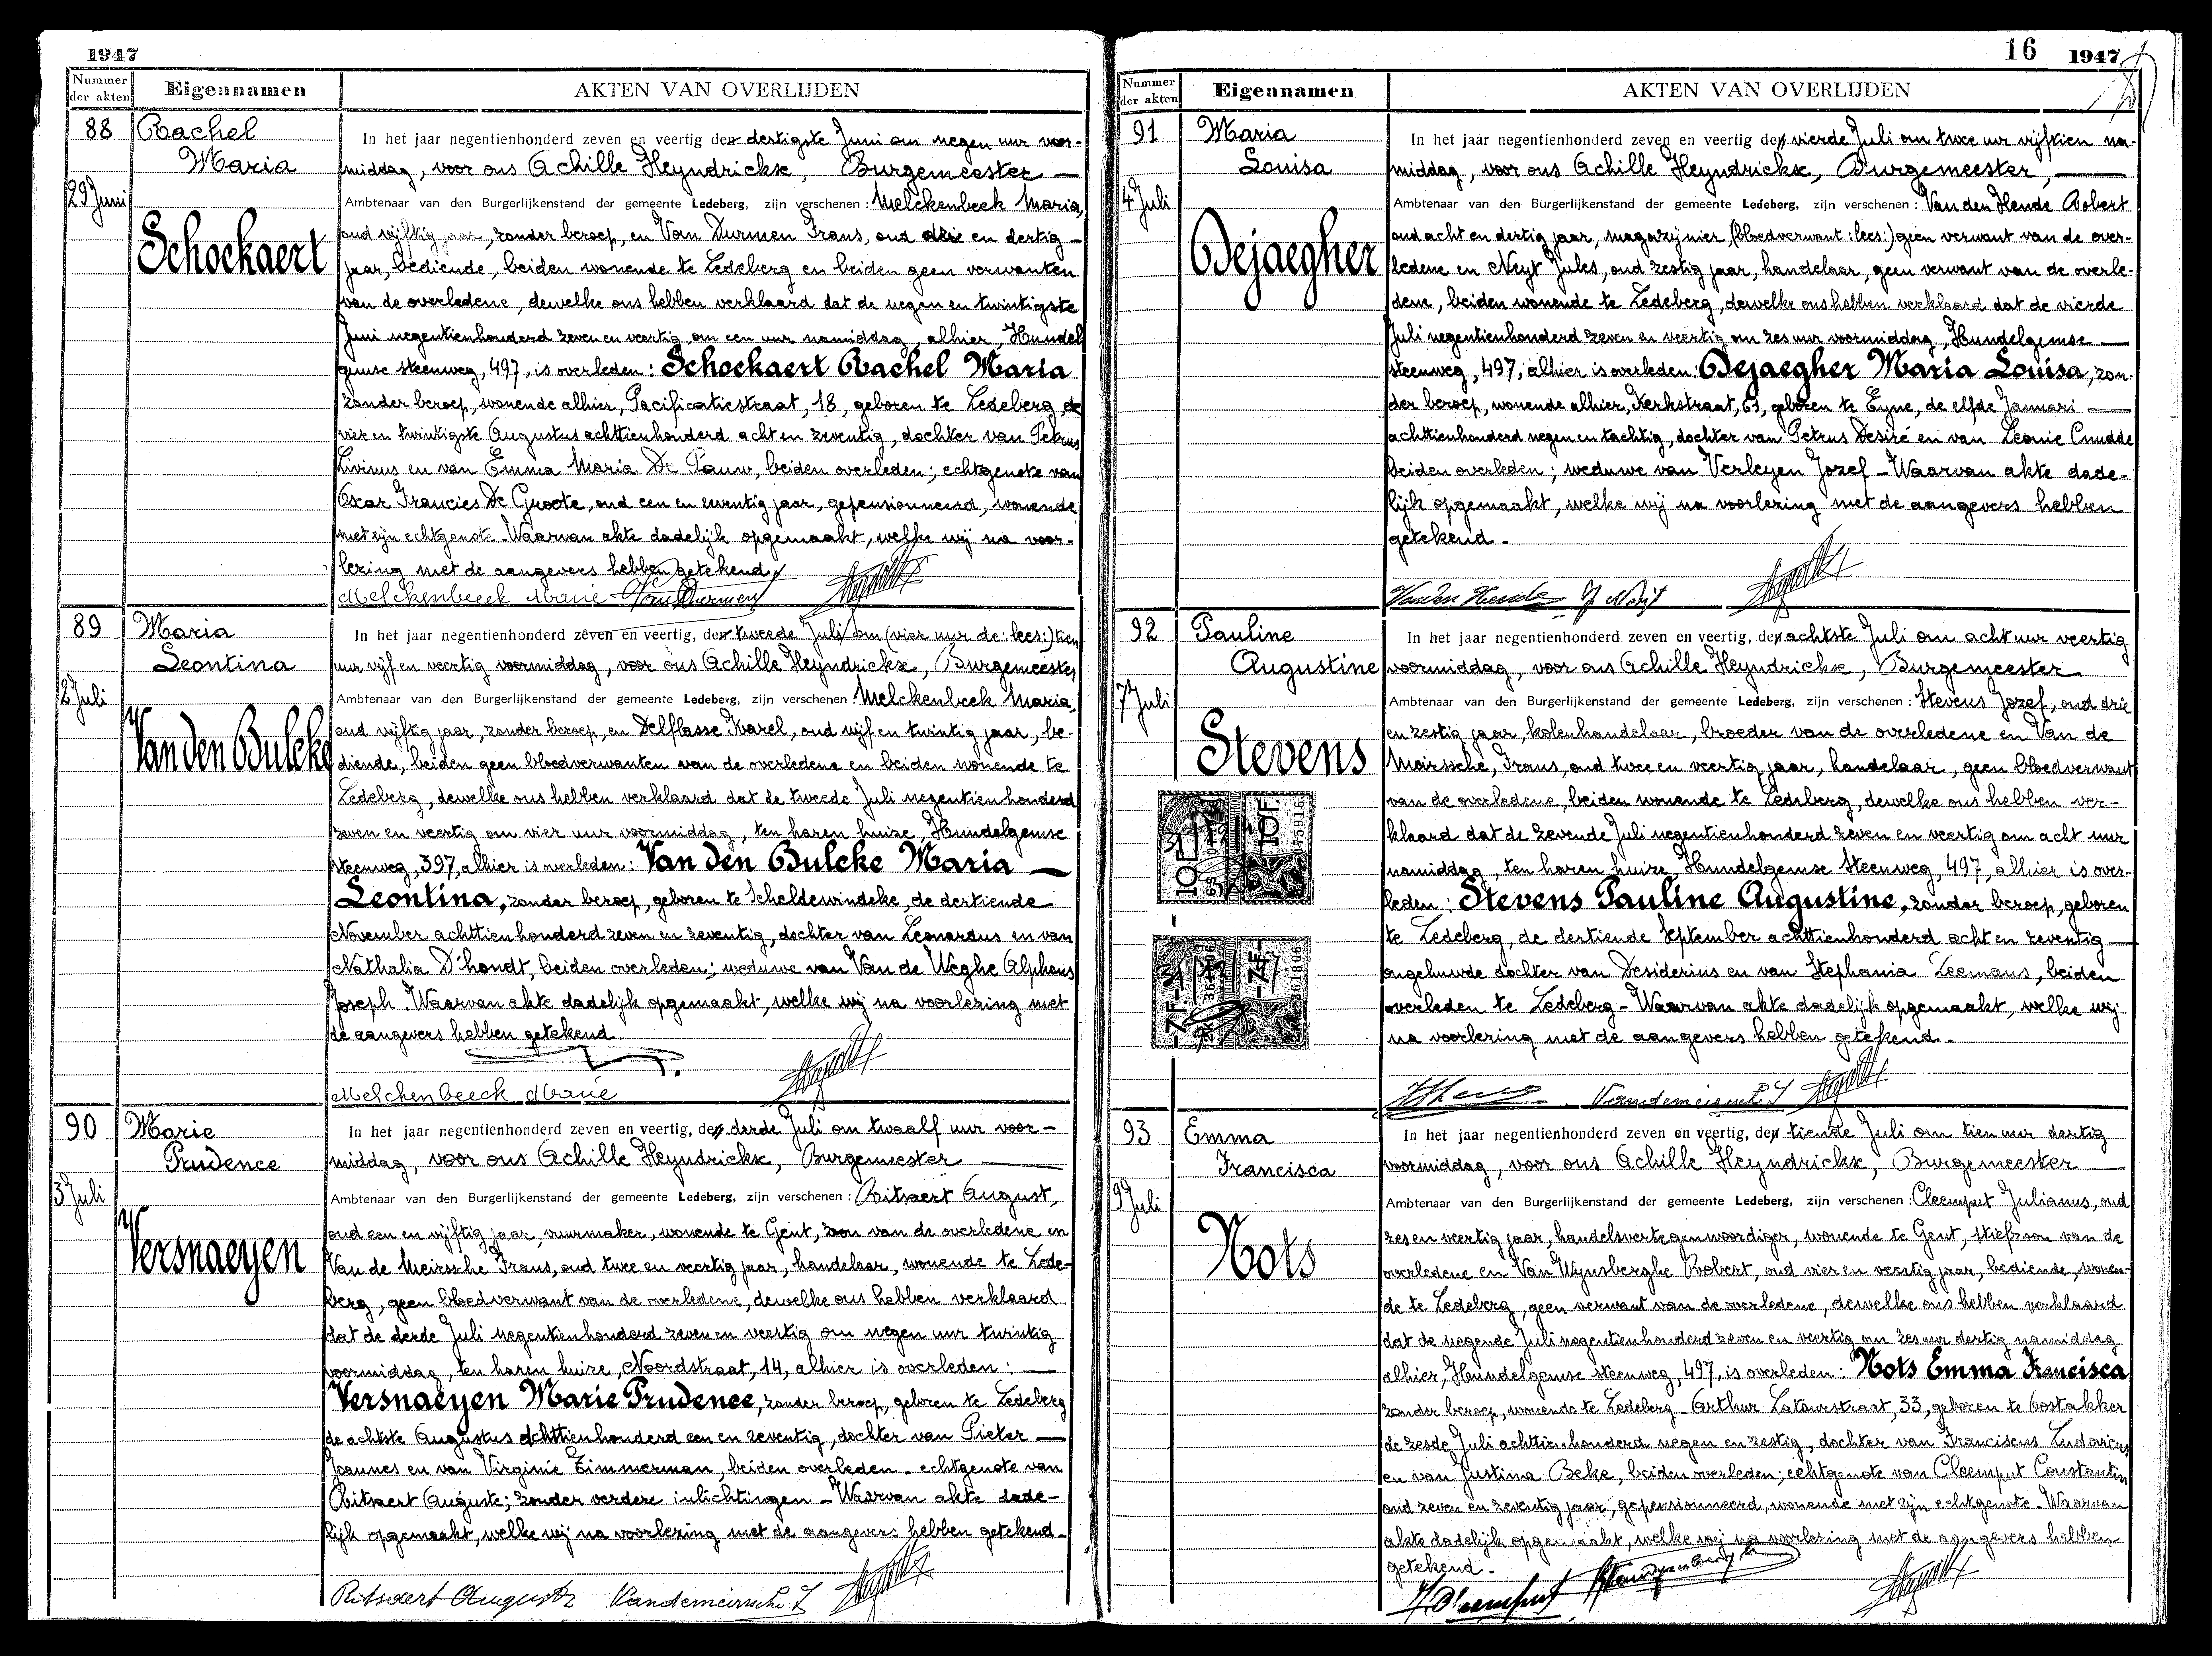 1947
Nummer der akten
Eigennamen
AKTEN VAN OVERLIJDEN
88
Rachel
Maria
29 Juni
Schockaert
In het jaar negentienhonderd zeven en veertig den dertigste Juni om negen uur voor-
middag, voor ons Achille Heyndrickx, Burgemeester —
Ambtenaar van den Burgerlijkenstand der gemeente Ledeberg, zijn verschenen: Melckenbeek Maria,
oud vijftig jaar, zonder beroep, en Van Durmen Frans, oud drie en dertig
jaar, bediende, beiden wonende te Ledeberg en beiden geen verwanten
van de overledene, dewelke ons hebben verklaard dat de negen en twintigste
Juni negentienhonderd zeven en veertig om een uur namiddag, alhier, Hundel
gemse steenweg, 497, is overleden: Schockaert Rachel Maria
zonder beroep, wonende alhier, Pacificatiestraat, 18, geboren te Ledeberg de
vier en twintigste Augustus achttienhonderd acht en zeventig, dochter van Petrus
Livinus en van Emma Maria De Pauw, beiden overleden; echtgenote van
Oscar Francies De Groote, oud een en zeventig jaar, gepensionneerd, wonende
met zijn echtgenote. Waarvan akte dadelijk opgemaakt, welke wij na voor-
lezing met de aangevers hebben getekend
Melckenbeeck Marie Van Durmen
89
Maria
Leontina
2 Juli
Van den Bulcke
In het jaar negentienhonderd zeven en veertig, den tweede Juli om (vier uur de: lees:) tien
uur vijf en veertig voormiddag, voor ons Achille Heyndrickx, Burgemeester
Ambtenaar van den Burgerlijkenstand der gemeente Ledeberg, zijn verschenen: Melckenbeek Maria,
oud vijftig jaar, zonder beroep, en Delflasse Karel, oud vijf en twintig jaar, be-
diende, beiden geen bloedverwanten van de overledene en beiden wonende te
Ledeberg, dewelke ons hebben verklaard dat de tweede Juli negentienhonderd
zeven en veertig om vier uur voormiddag, ten haren huize, Hundelgemse
steenweg, 397, alhier is overleden: Van den Bulcke Maria —
Leontina, zonder beroep, geboren te Scheldewindeke, de dertiende
November achttienhonderd zeven en zeventig, dochter van Leonardus en van
Nathalia D'hondt, beiden overleden; weduwe van Van de Weghe Alphons
Joseph. Waarvan akte dadelijk opgemaakt, welke wij na voorlezing met
de aangevers hebben getekend.
Melckenbeeck Marie
90
Marie
Prudence
3 Juli
Versnaeyen
In het jaar negentienhonderd zeven en veertig, den derde Juli om twaalf uur voor-
middag, voor ons Achille Heyndrickx, Burgemeester —
Ambtenaar van den Burgerlijkenstand der gemeente Ledeberg, zijn verschenen: Ritsaert August,
oud een en vijftig jaar, vuurmaker, wonende te Gent, zoon van de overledene en
Van de Meirssche Frans, oud twee en veertig jaar, handelaar, wonende te Lede-
berg, geen bloedverwant van de overledene, dewelke ons hebben verklaard
dat de derde Juli negentienhonderd zeven en veertig om negen uur twintig
voormiddag, ten haren huize, Noordstraat, 14, alhier is overleden: —
Versnaeyen Marie Prudence, zonder beroep, geboren te Ledeberg
de achtste Augustus achttienhonderd een en zeventig, dochter van Pieter —
Joannes en van Virginie Zimmerman, beiden overleden - echtgenote van
Ritsaert Auguste; zonder verdere inlichtingen - Waarvan akte dade-
lijk opgemaakt, welke wij na voorlezing met de aangevers hebben getekend -
Ritsaert Auguste Vandemeirssche F
16 1947
Nummer der akten
Eigennamen
AKTEN VAN OVERLIJDEN
91
Maria
Louisa
4 Juli
Dejaegher
In het jaar negentienhonderd zeven en veertig den vierde Juli om twee uur vijftien na-
middag, voor ons Achille Heyndrickx, Burgemeester, —
Ambtenaar van den Burgerlijkenstand der gemeente Ledeberg, zijn verschenen: Van den Hende Robert
oud acht en dertig jaar, magazijnier, (bloedverwant: lees:) geen verwant van de over-
ledene en Neyt Jules, oud zestig jaar, handelaar, geen verwant van de overle-
dene, beiden wonende te Ledeberg, dewelke ons hebben verklaard dat de vierde
Juli negentienhonderd zeven en veertig om zes uur voormiddag, Hundelgemse —
steenweg, 497, alhier is overleden: Dejaegher Maria Louisa, zon-
der beroep, wonende alhier, Kerkstraat, 61, geboren te Eyne, de elfde Januari —
achttienhonderd negen en tachtig, dochter van Petrus Desiré en van Leonie Cnudde
beiden overleden; weduwe van Verleyen Jozef - Waarvan akte dade-
lijk opgemaakt, welke wij na voorlezing met de aangevers hebben
getekend -
Van den Hende J Neyt
92
Pauline
Augustine
7 Juli
Stevens
10F
10F
7F
7F
361806
In het jaar negentienhonderd zeven en veertig, den achtste Juli om acht uur veertig
voormiddag, voor ons Achille Heyndrickx, Burgemeester
Ambtenaar van den Burgerlijkenstand der gemeente Ledeberg, zijn verschenen: Stevens Jozef, oud drie
en zestig jaar, kolenhandelaar, broeder van de overledene en Van de
Meirssche, Frans, oud twee en veertig jaar, handelaar, geen bloedverwant
van de overledene, beiden wonende te Ledeberg, dewelke ons hebben ver-
klaard dat de zevende Juli negentienhonderd zeven en veertig om acht uur
namiddag, ten haren huize, Hundelgemse Steenweg, 497, alhier is over-
leden: Stevens Pauline Augustine, zonder beroep, geboren
te Ledeberg, de dertiende September achttienhonderd acht en zeventig —
ongehuwde dochter van Desiderius en van Stephania Leemans, beiden
overleden te Ledeberg - Waarvan akte dadelijk opgemaakt, welke wij
na voorlezing met de aangevers hebben getekend -
Vandemeirssche F
93
Emma
Francisca
9 Juli
Nots
In het jaar negentienhonderd zeven en veertig, den tiende Juli om tien uur dertig
voormiddag, voor ons Achille Heyndrickx, Burgemeester —
Ambtenaar van den Burgerlijkenstand der gemeente Ledeberg, zijn verschenen: Cleemput Julianus, oud
zes en veertig jaar, handelsvertegenwoordiger, wonende te Gent, stiefzoon van de
overledene en Van Wynsberghe Robert, oud vier en veertig jaar, bediende, wonen-
de te Ledeberg, geen verwant van de overledene, dewelke ons hebben verklaard
dat de negende Juli negentienhonderd zeven en veertig om zes uur dertig namiddag
alhier, Hundelgemse steenweg, 497, is overleden: Nots Emma Francisca
zonder beroep, wonende te Ledeberg - Arthur Latourstraat, 33, geboren te Oostakker
de zesde Juli achttienhonderd negen en zestig, dochter van Franciscus Ludovicus
en van Justina Beke, beiden overleden; echtgenote van Cleemput Constantin
oud zeven en zeventig jaar, gepensionneerd, wonende met zijn echtgenote - Waarvan
akte dadelijk opgemaakt, welke wij na voorlezing met de aangevers hebben
getekend -